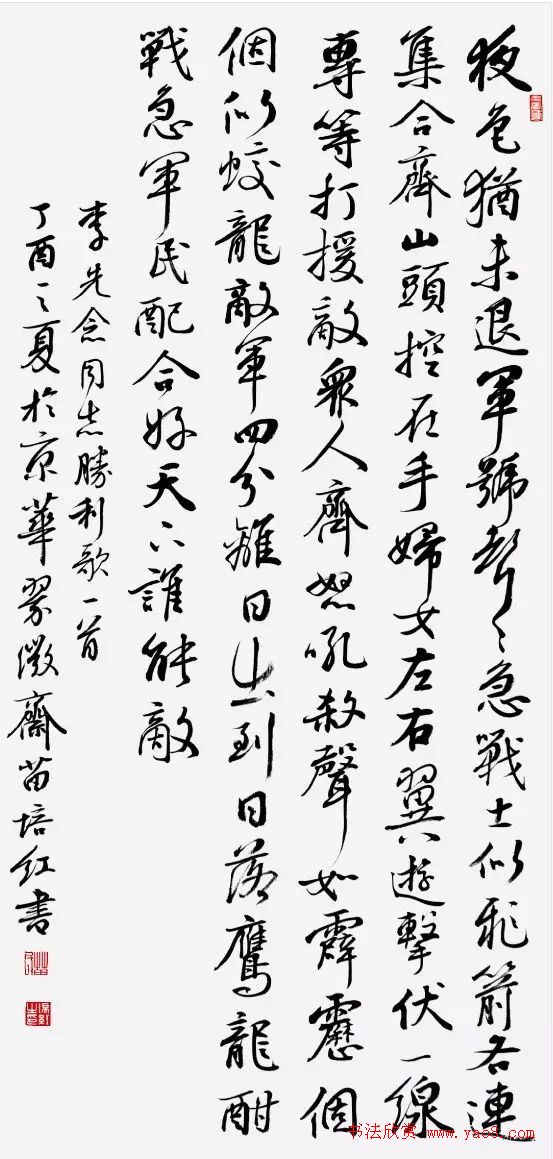 夜色猶未退軍號聲々急戰士似飛箭各連
集合齊山頭控在手婦女左右翼遊擊伏一線
專等打援敵眾人齊怒吼殺聲如霹靂個
個似蛟龍敵軍四分離日出到日落鷹龍酣
戰急軍民配合好天下誰能敵
李先念同志勝利歌一首
丁酉之夏於京華翠微齋苗培红書
书法欣赏 www.yac8.com